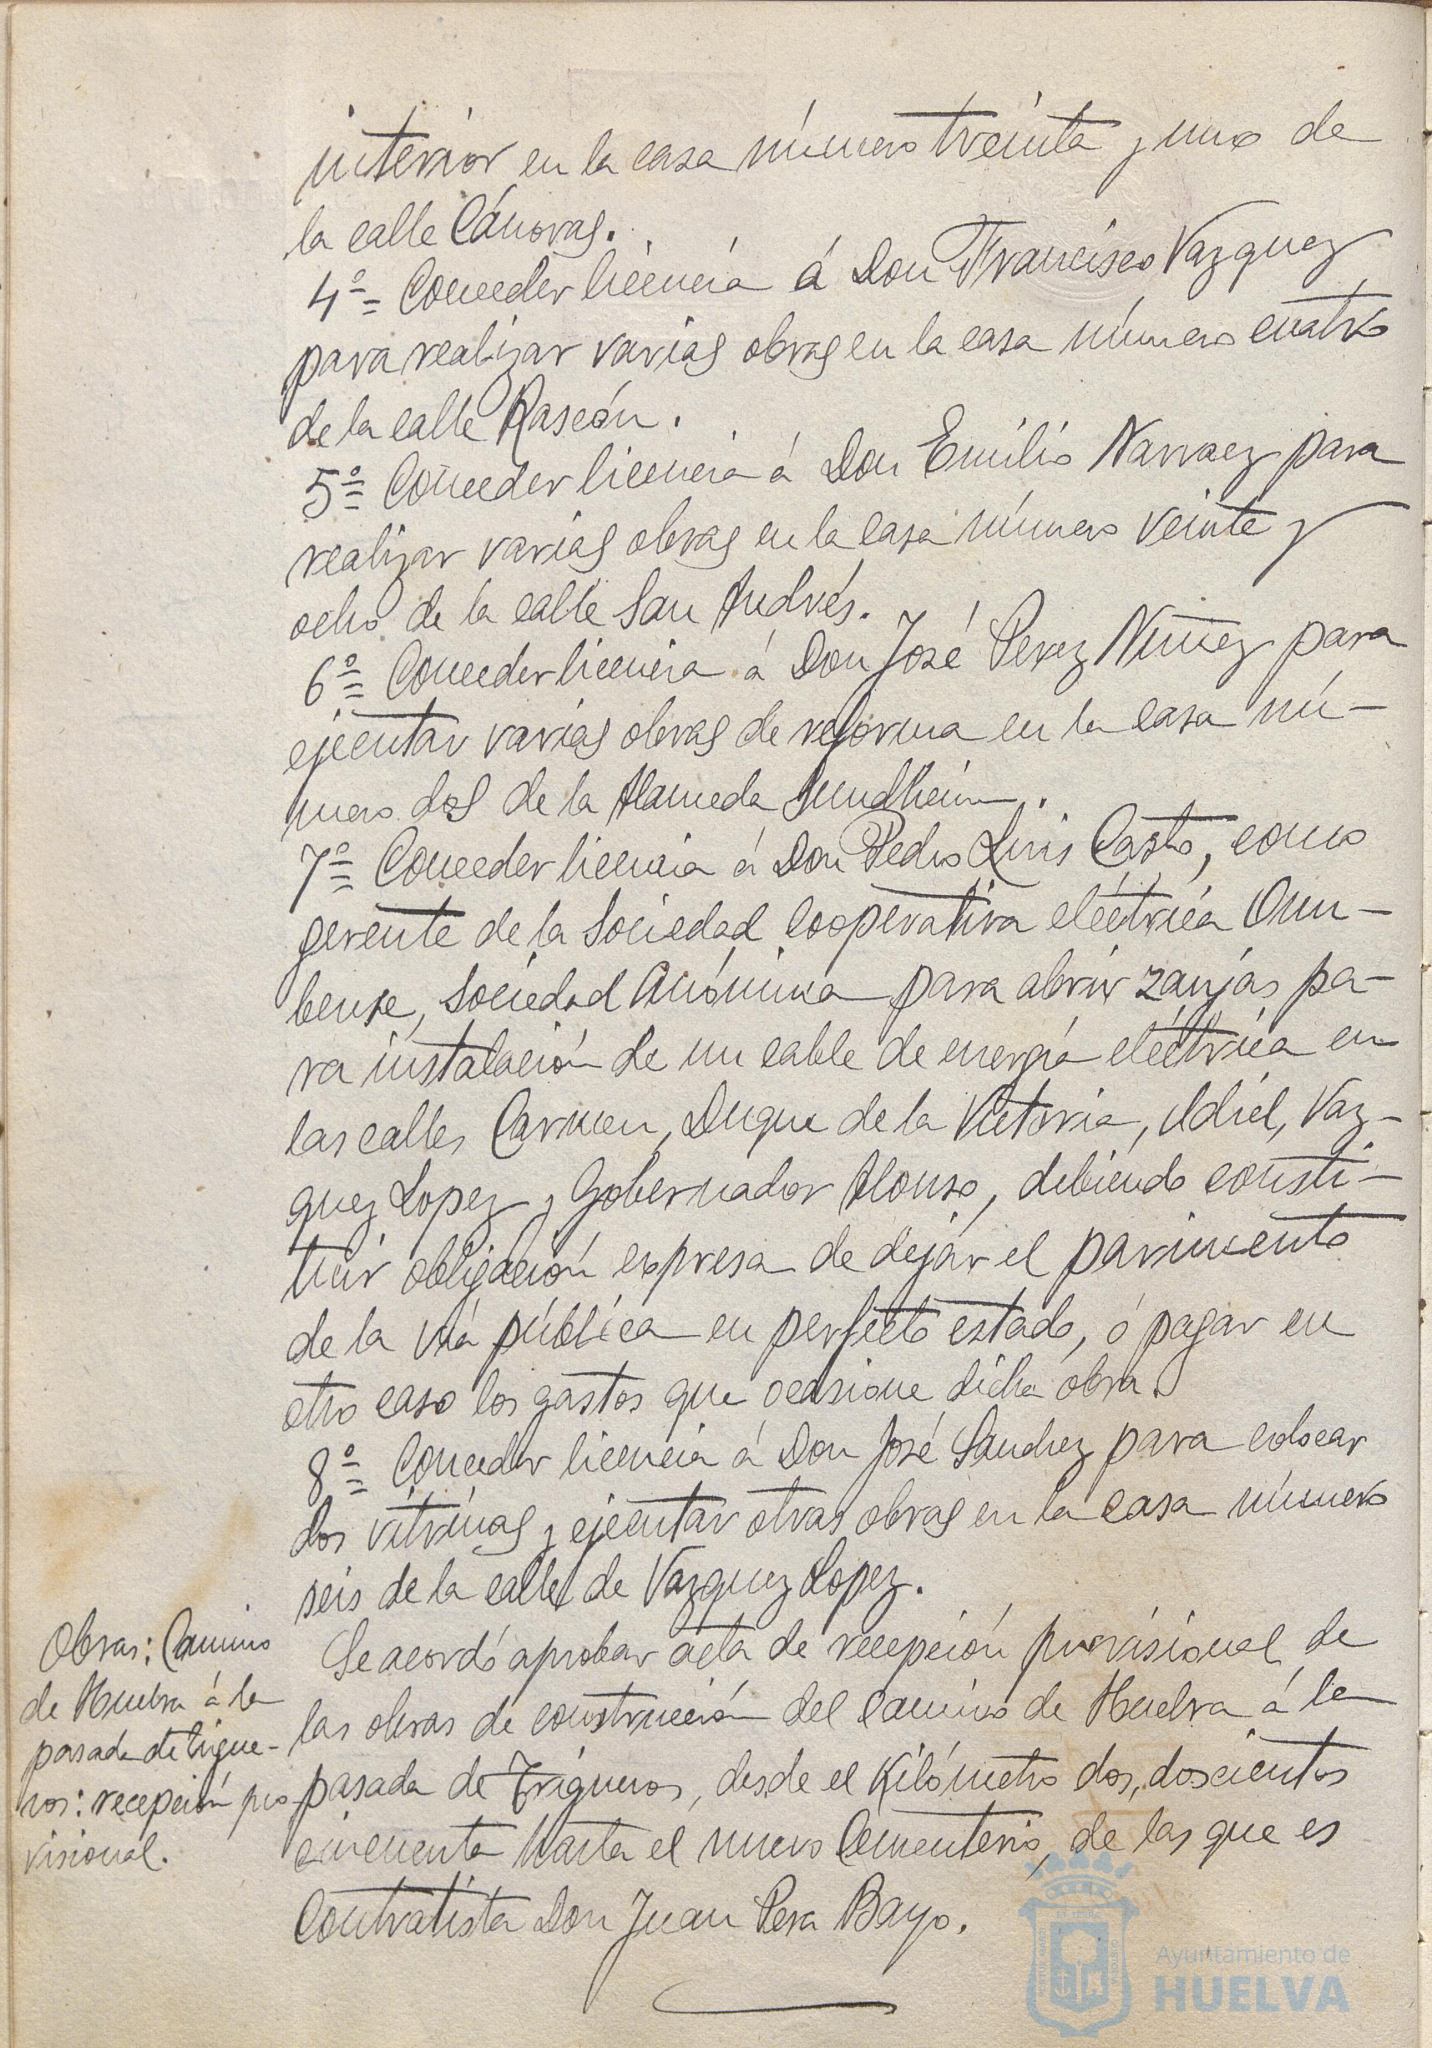 interior en la casa número treinta y uno de
la calle Cánovas.
4º= Conceder licencia á Don Francisco Vazquez
para realizar varias obras en la casa número cuatro
de la calle Rascón.
5º= Conceder licencia á Don Emilio Narvaez para
realizar varias obras en la casa número veinte y
ocho de la calle San Andrés.
6º= Conceder licencia á Don José Perez Nuñez para
ejecutar varias obras de reforma en la casa nú-
mero dos de la Alameda Sundheim.
7º= Conceder licencia á Don Pedro Luis Casto, como
gerente de la Sociedad cooperativa eléctrica Onu-
bense, Sociedad Anónima para abrir zanjas pa-
ra instalación de un cable de energía eléctrica en
las calles Carmen, Duque de la Victoria, Odiel, Vaz-
quez Lopez y Gobernador Alonso, debiendo consti-
tuir obligación expresa de dejar el pavimento
de la vía pública en perfecto estado, ó pagar en
otro caso los gastos que ocasione dicha obra.
8º= Conceder licencia á Don José Sánchez para colocar
dos vitrinas y ejecutar otras obras en la casa número
seis de la calle de Vazquez Lopez.
Obras: Camino
de Huelva á la
pasada de Trigue-
ros: recepción pro
visional.
Se acordó aprobar acta de recepción provisional de
las obras de construcción del camino de Huelva á la
pasada de Trigueros, desde el Kilómetro dos, doscientos
cincuenta hasta el nuevo Cementerio, de las que es
Contratista Don Juan Pera Bayo.
Ayuntamiento de
HUELVA